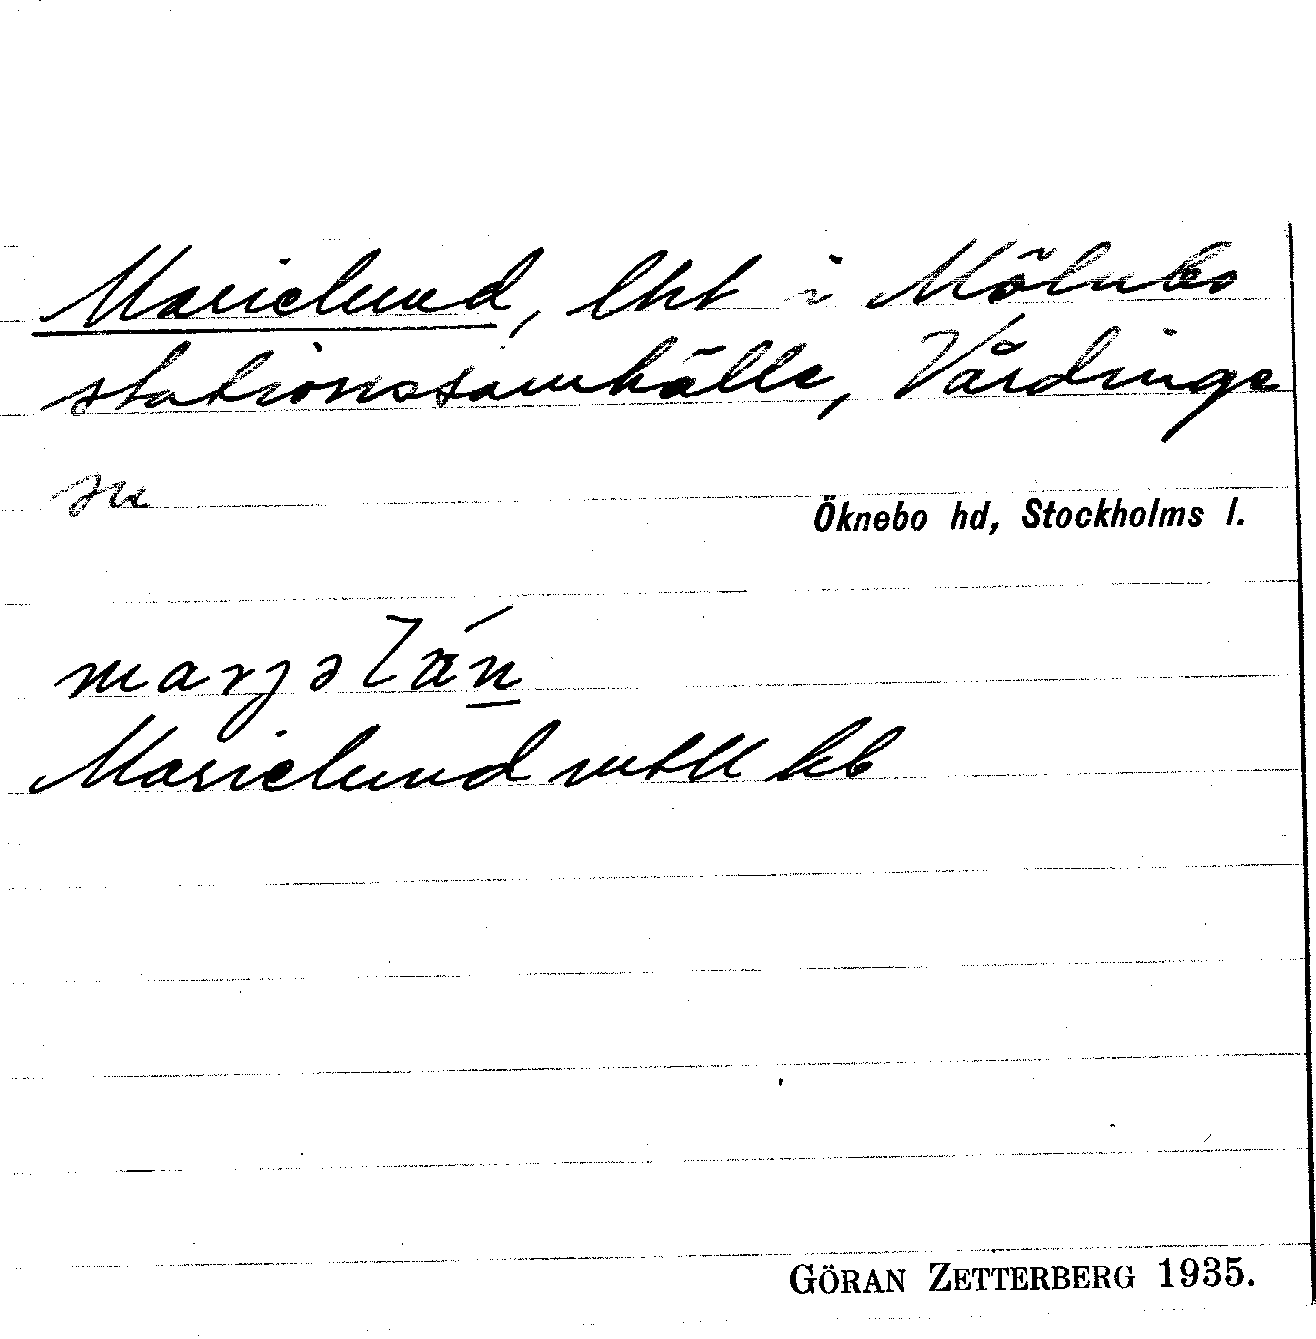 Marielund, lht i Mölnbo
stationssamhälle, Vårdinge
sn
Öknebo hd, Stockholms l.
Marielund mtbl kb
GÖRAN ZETTERBERG 1935.